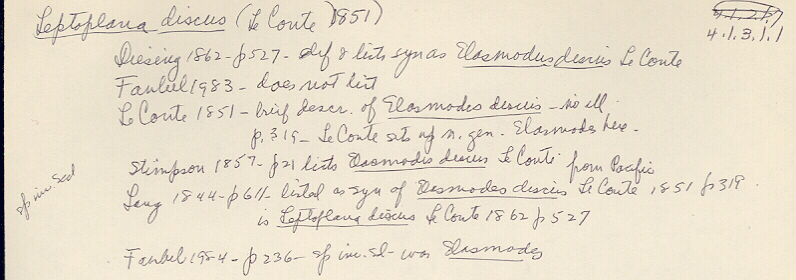 Leptoplana discus (Le Conte 1851)
4.1.2.7
4.1.3.1.1
Diesing 1862 - p527 - def & lists syn as Elasmodes discus Le Conte
Faubel 1983 - does not list
Le Conte 1851 - brief descr. of Elasmodes discus - no ill.
p. 319 - Le Conte sets up n. gen. Elasmodes here.
Stimpson 1857 - p21 lists Elasmodes discus Le Conte from Pacific
sp inc. sed
Lang 1844 - p611 - listed as syn of Elasmodes discus Le Conte 1851 p319
is Leptoplana discus Le Conte 1862 p527
Faubel 1984 - p236 - sp inc. sd - was Elasmodes